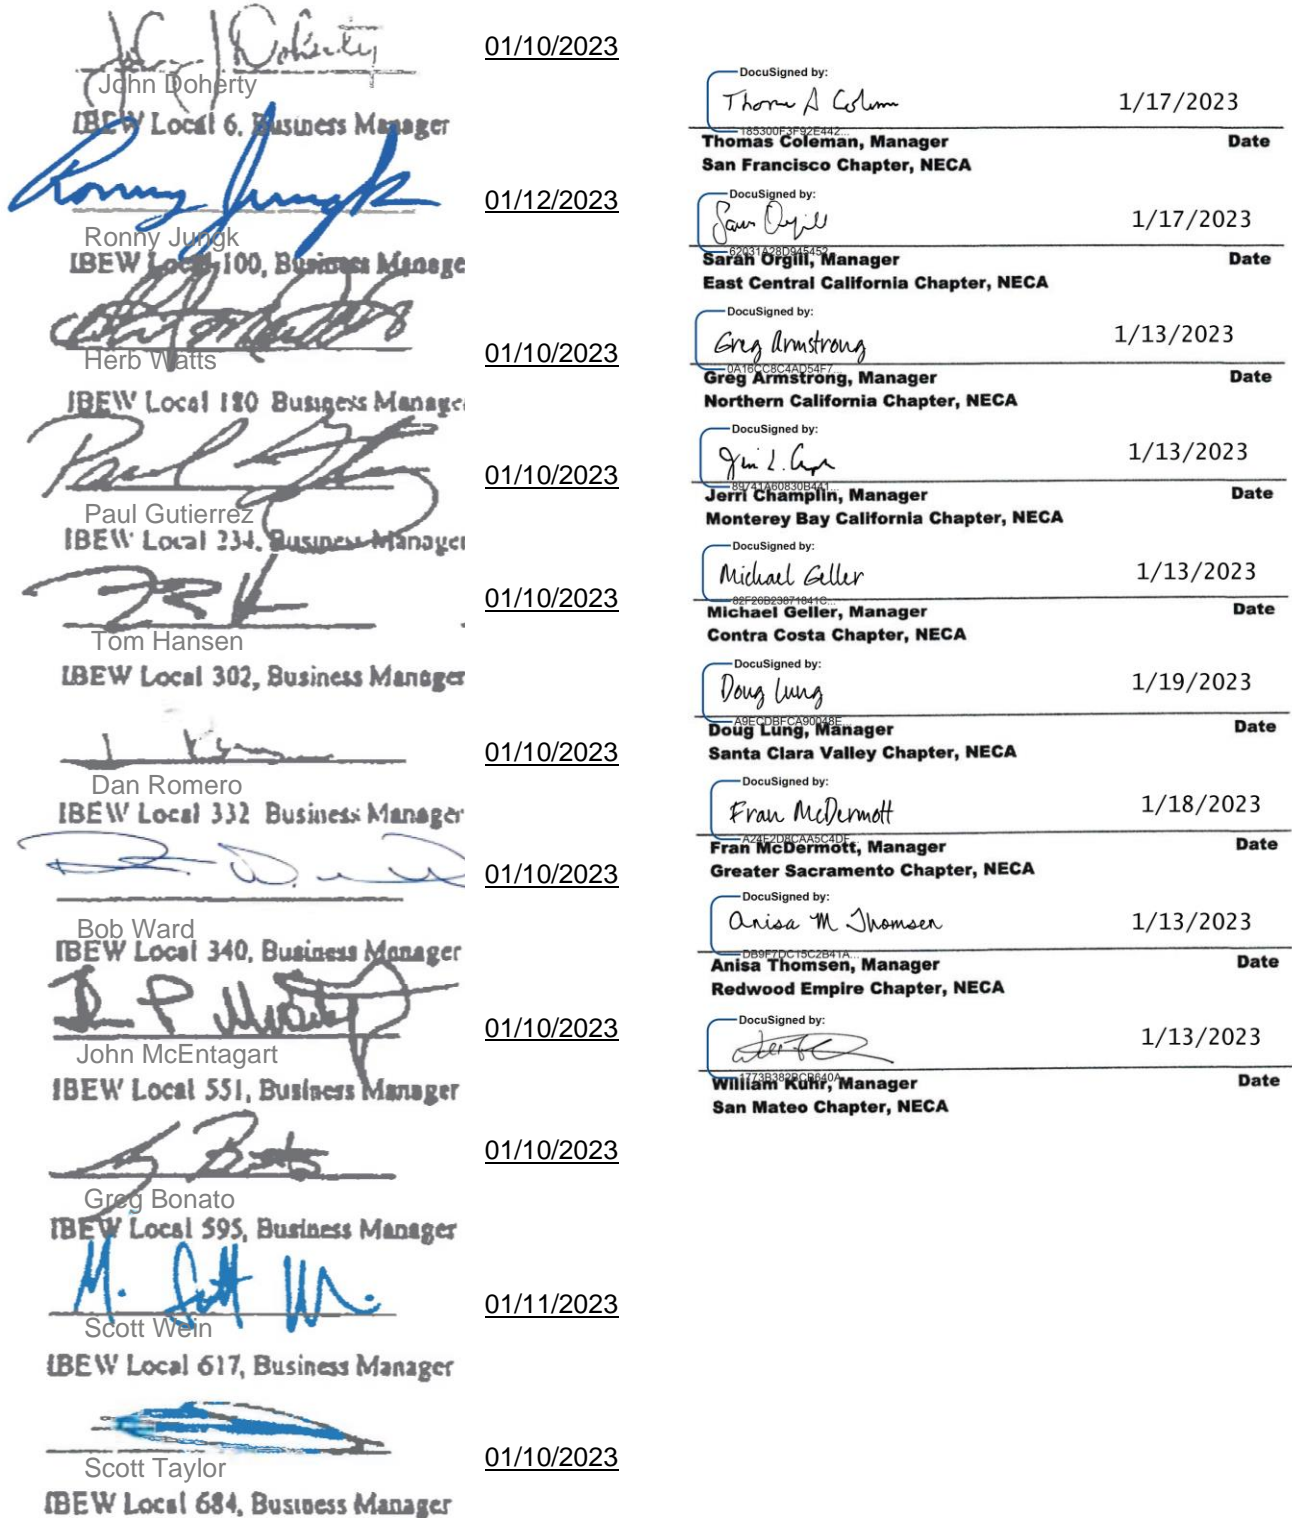 01/10/2023
John Doherty
IBEW Local 6, Business Manager
01/12/2023
Ronny Jungk
IBEW Local 100, Business Manage
01/10/2023
Herb Watts
IBEW Local 180 Business Manage
01/10/2023
Paul Gutierrez
IBEW Local 234, Business Manager
01/10/2023
Tom Hansen
IBEW Local 302, Business Manager
01/10/2023
Dan Romero
IBEW Local 332 Business Manager
01/10/2023
Bob Ward
IBEW Local 340, Business Manager
01/10/2023
John McEntagart
IBEW Local 551, Business Manager
01/10/2023
Greg Bonato
IBEW Local 595, Business Manager
M. Scott W.
01/11/2023
Scott Wein
IBEW Local 617, Business Manager
01/10/2023
Scott Taylor
IBEW Local 684, Business Manager
DocuSigned by:
1/17/2023
185300F3F92E442...
Thomas Coleman, Manager Date
San Francisco Chapter, NECA
DocuSigned by:
1/17/2023
62031A28D945452...
Sarah Orgill, Manager Date
East Central California Chapter, NECA
DocuSigned by:
Greg Armstrong 1/13/2023
0A16CC8C4AD54F7...
Greg Armstrong, Manager Date
Northern California Chapter, NECA
DocuSigned by:
1/13/2023
89741A60830B441...
Jerri Champlin, Manager Date
Monterey Bay California Chapter, NECA
DocuSigned by:
Michael Geller 1/13/2023
82F26B23871841C...
Michael Geller, Manager Date
Contra Costa Chapter, NECA
DocuSigned by:
Doug Lung 1/19/2023
A9ECDBFCA90048E...
Doug Lung, Manager Date
Santa Clara Valley Chapter, NECA
DocuSigned by:
Fran McDermott 1/18/2023
A24F2D8CAA5C4DF...
Fran McDermott, Manager Date
Greater Sacramento Chapter, NECA
DocuSigned by:
Anisa M Thomsen 1/13/2023
DB9F7DC15C2B41A...
Anisa Thomsen, Manager Date
Redwood Empire Chapter, NECA
DocuSigned by:
1/13/2023
William Kuhr, Manager Date
San Mateo Chapter, NECA